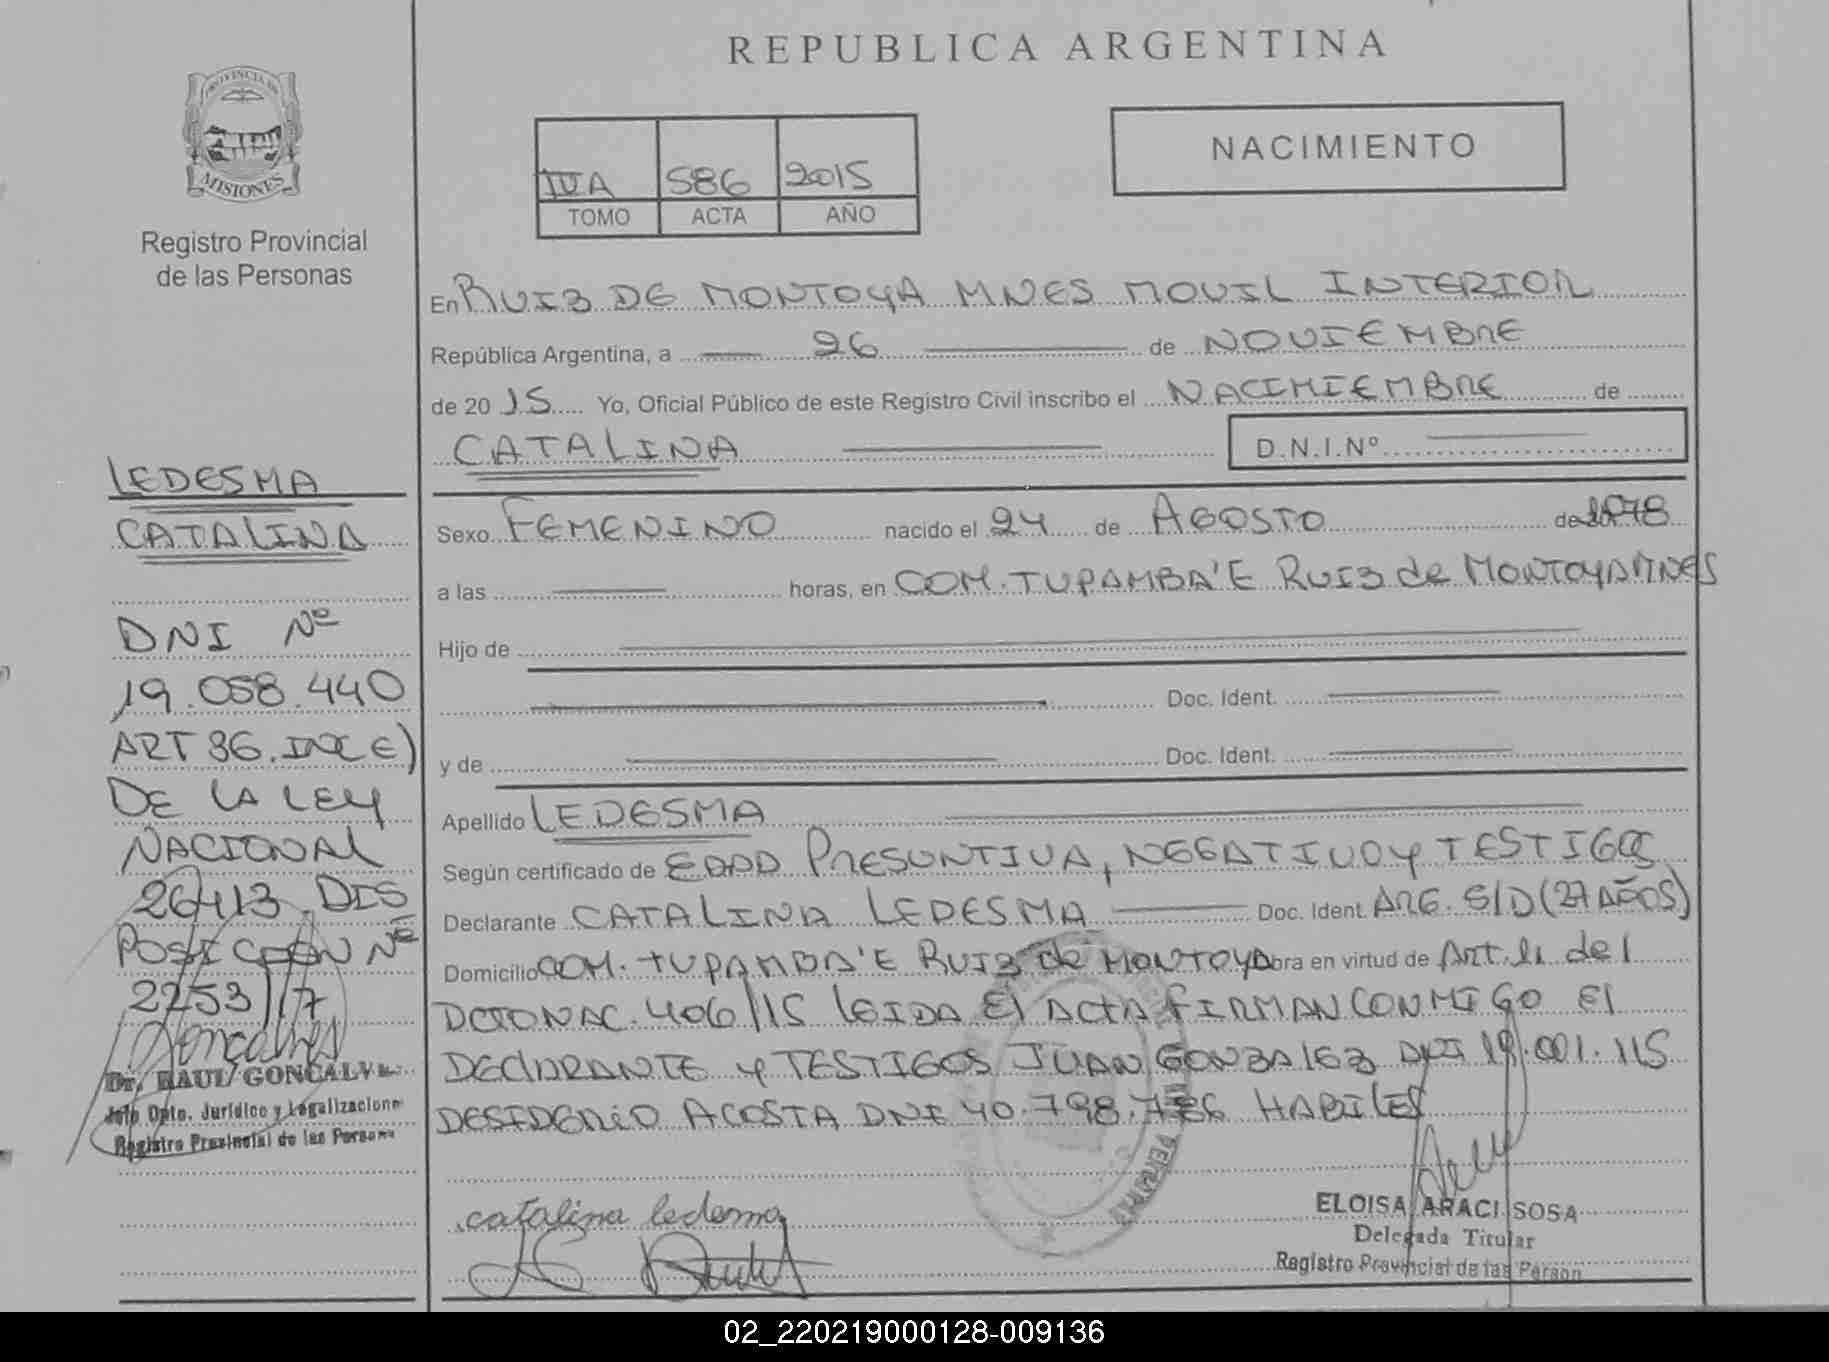 REPUBLICA ARGENTINA
PROVINCIA DE
MISIONES
Registro Provincial
de las Personas
IVA 586 2015
TOMO ACTA AÑO
NACIMIENTO
En RUIZ DE MONTOYA MNES MOVIL INTERIOR
República Argentina, a 26 de NOVIEMBRE
de 20 15 Yo, Oficial Público de este Registro Civil inscribo el NACIMIEMBRE de
CATALINA D.N.I.Nº
Sexo FEMENINO nacido el 24 de AGOSTO de 1978
a las horas, en COM. TUPAMBA'E RUIZ de MONTOYA MNES
Hijo de
Doc. Ident.
y de Doc. Ident.
Apellido LEDESMA
Según certificado de EDAD PRESUNTIVA, NEGATIVO y TESTIGOS
Declarante CATALINA LEDESMA Doc. Ident. ARG. S/D (27 AÑOS)
Domicilio COM. TUPAMBA'E RUIZ de MONTOYA obra en virtud de Art. 1 del
DCTO NAC. 406/15 LEIDA El ACTA FIRMAN CONMIGO El
DEClARANTE y TESTIGOS JUAN GONZALEZ DNI 19.001.115
DESIDERIO ACOSTA DNI 40.798.786 HABILES
catalina ledesma
ELOISA ARACI SOSA
Delegada Titular
Registro Provincial de las Person
LEDESMA
CATALINA
DNI Nº
19.058.440
ART 36. INC E)
DE LA LEY
NACIONAL
26413. DIS
POSICION Nº
2253/17
Dr. RAUL GONCALVES
Jefe Dpto. Jurídico y Legalizacione
Registro Provincial de las Persona
02_220219000128-009136